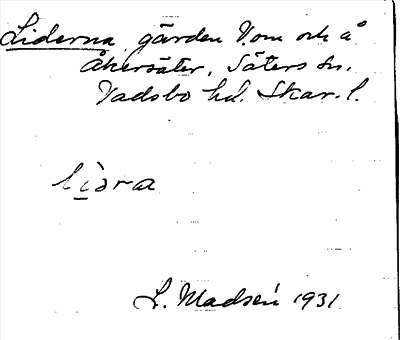 Liderna, gärden V.om och å
Åkersäter, Säters sn.
Vadsbo hd. Skar. l.
lìdra
L. Madsén 1931